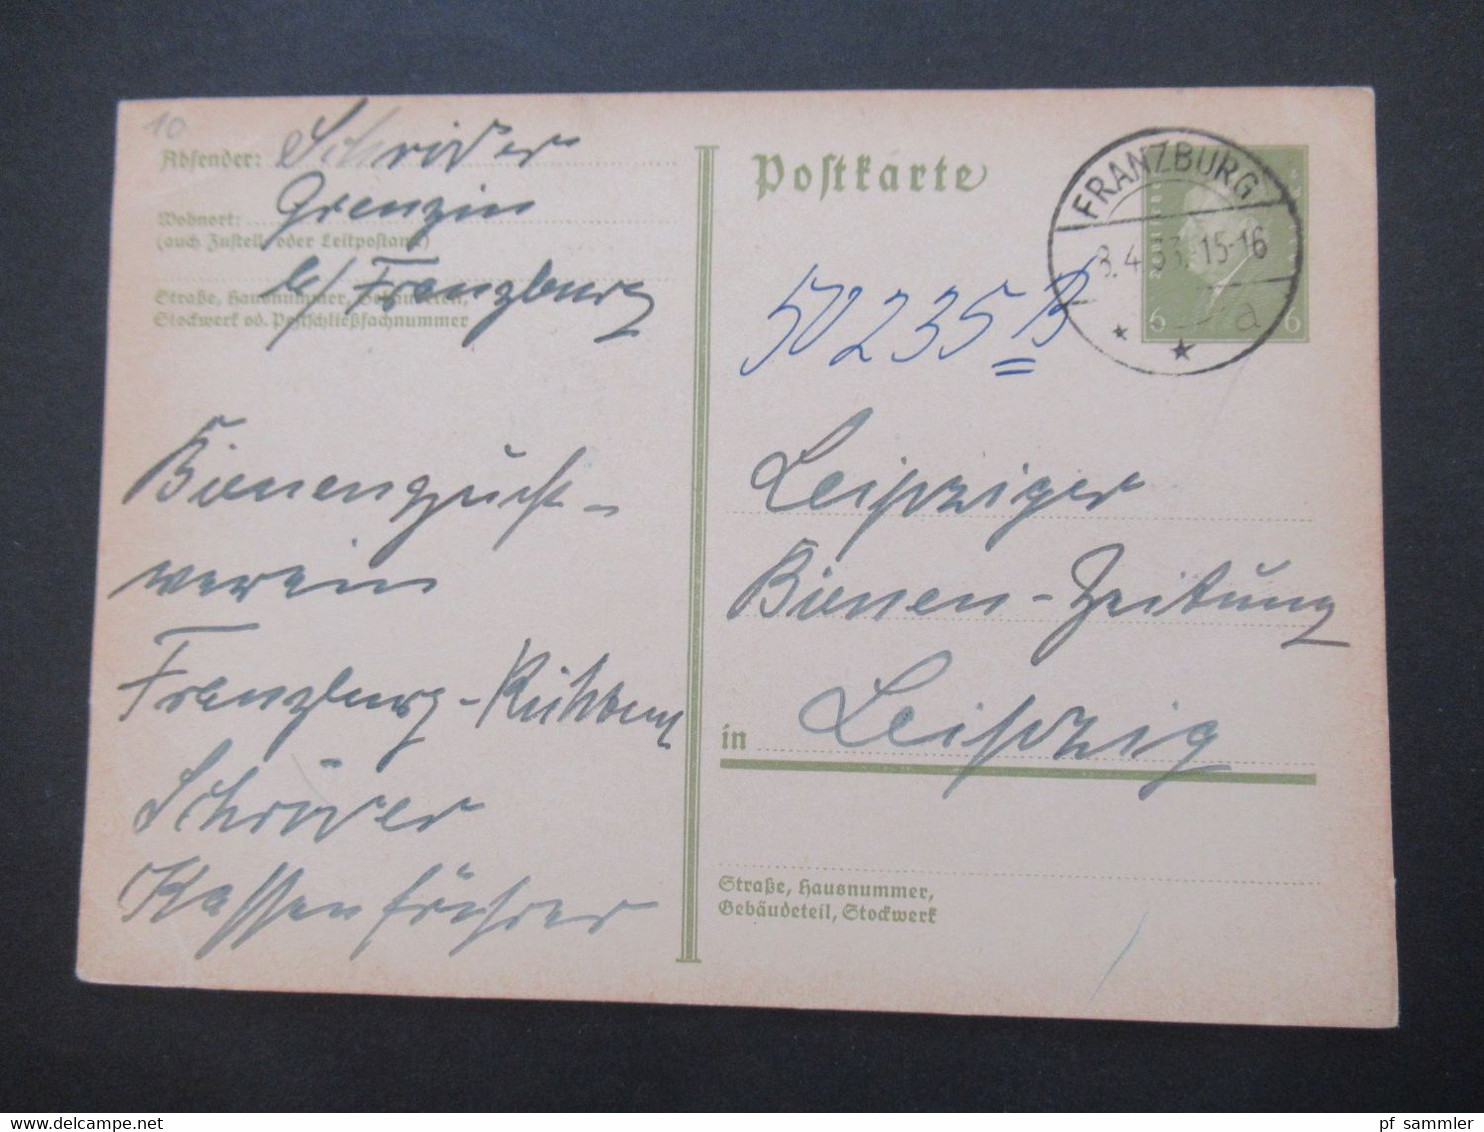 10
Absender: Schröder
Wohnort: Grenzin
(auch Zustell- oder Leitpostamt)
b/ Franzburg
Straße, Hausnummer, Gebäudeteil,
Stockwerk od. Postschließfachnummer
Bienenzucht-
verein
Franzburg-Richtenb
Schröder
Kassenführer
Postkarte
FRANZBURG
8.4.33. 15-16
a
6 6
50235 B
Leipziger
Bienen-Zeitung
in Leipzig
Straße, Hausnummer,
Gebäudeteil, Stockwerk
www.delcampe.net
pf_sammler